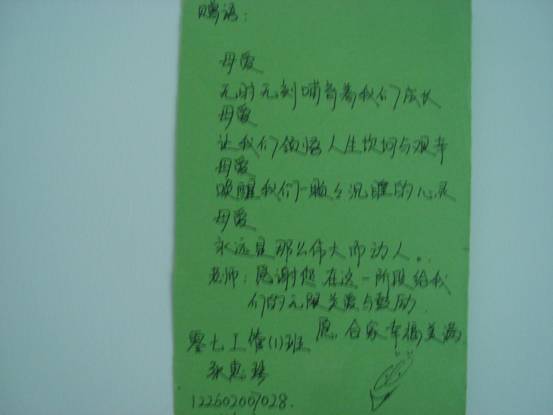 赠语:
母爱
无时无刻哺育着我们成长
母爱
让我们领悟人生坎坷与艰辛
母爱
唤醒我们一颗々沉睡的心灵
母爱
永远是那么伟大而动人..
老师:感谢您在这一阶段给我
们的无限关爱与鼓励.
愿合家幸福美满
零七工管(1)班
张惠
12260200028.